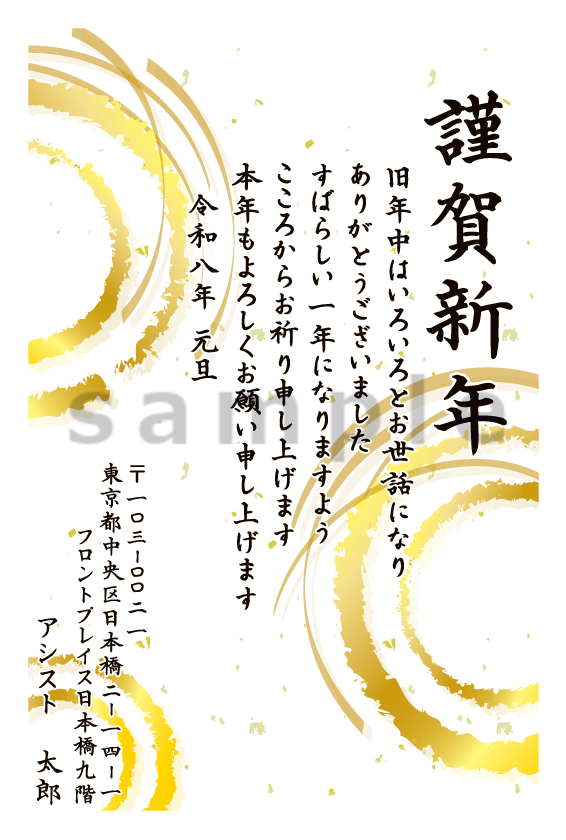 謹賀新年
旧年中はいろいろとお世話になり
ありがとうございました
すばらしい一年になりますよう
こころからお祈り申し上げます
本年もよろしくお願い申し上げます
令和八年 元旦
〒一〇三ー〇〇二一
東京都中央区日本橋二ー一四ー一
フロントプレイス日本橋九階
アシスト 太郎
sample